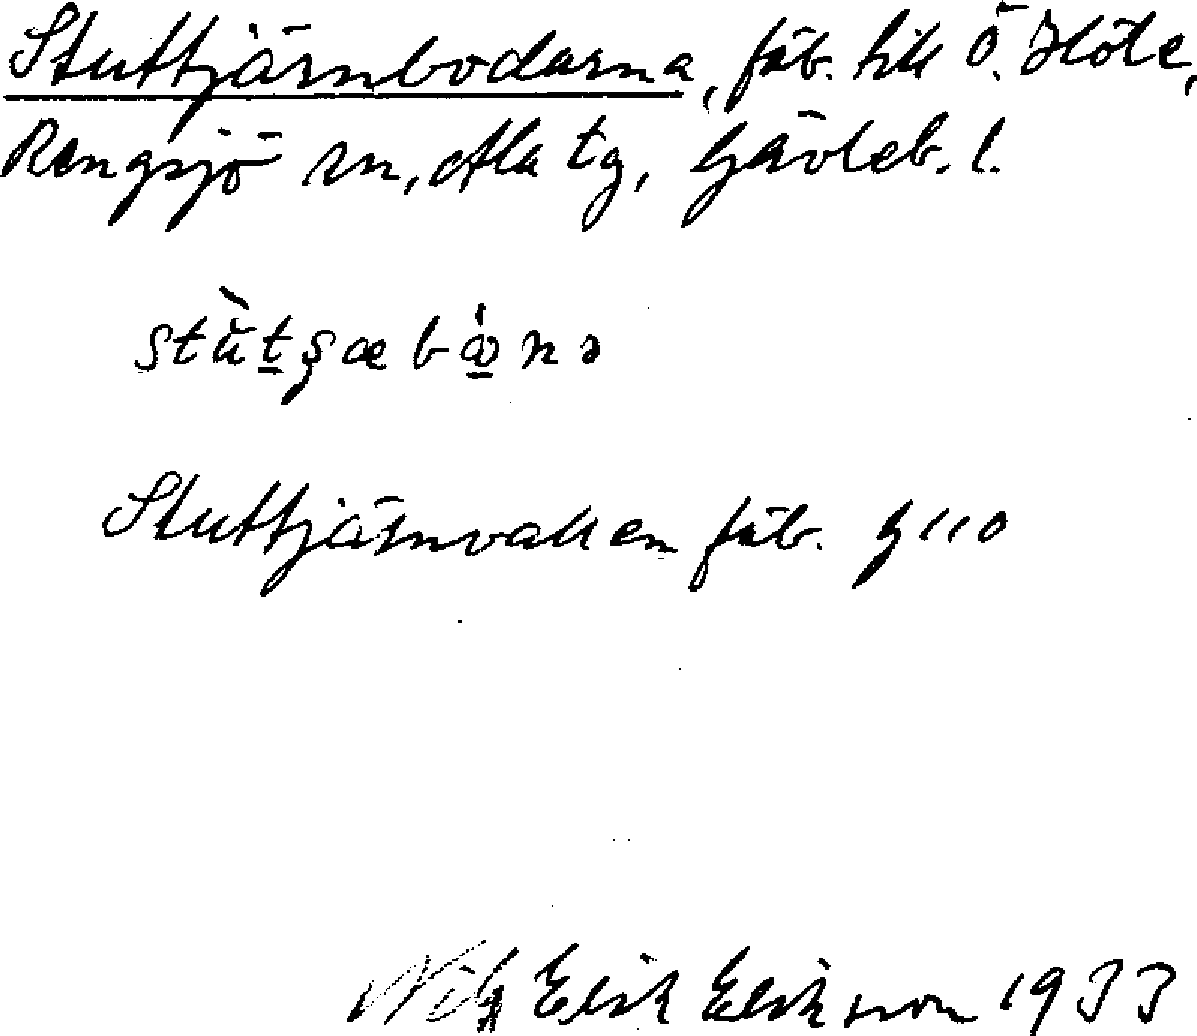 Stuttjärnbodarna, fäb. till Ö. Höle,
Rengsjö sn, Ala tg, Gävleb. l.
stùtʂæbɷ̀nə
Stuttjärnvallen fäb. g 110
Nils Erik Erikson 1933